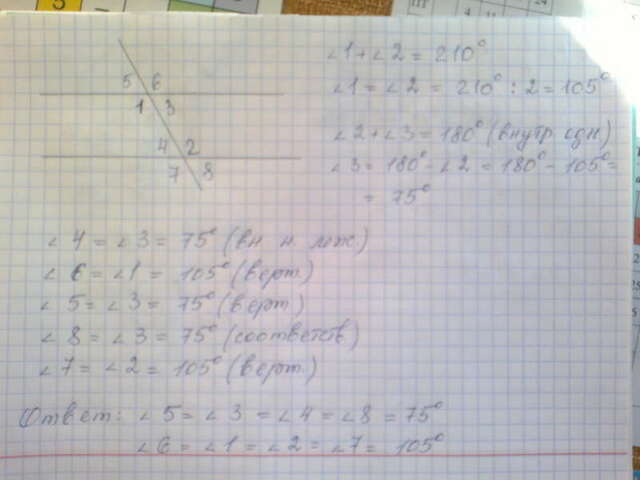 5 6
1 3
4 2
7 8
∠1 + ∠2 = 210°
∠1 = ∠2 = 210° : 2 = 105°
∠2 + ∠3 = 180° (внутр одн)
∠3 = 180° - ∠2 = 180° - 105° =
= 75°
∠4 = ∠3 = 75° (вн. н. леж.)
∠6 = ∠1 = 105° (верт.)
∠5 = ∠3 = 75° (верт)
∠8 = ∠3 = 75° (соответств)
∠7 = ∠2 = 105° (верт.)
Ответ: ∠5 = ∠3 = ∠4 = ∠8 = 75°
∠6 = ∠1 = ∠2 = ∠7 = 105°